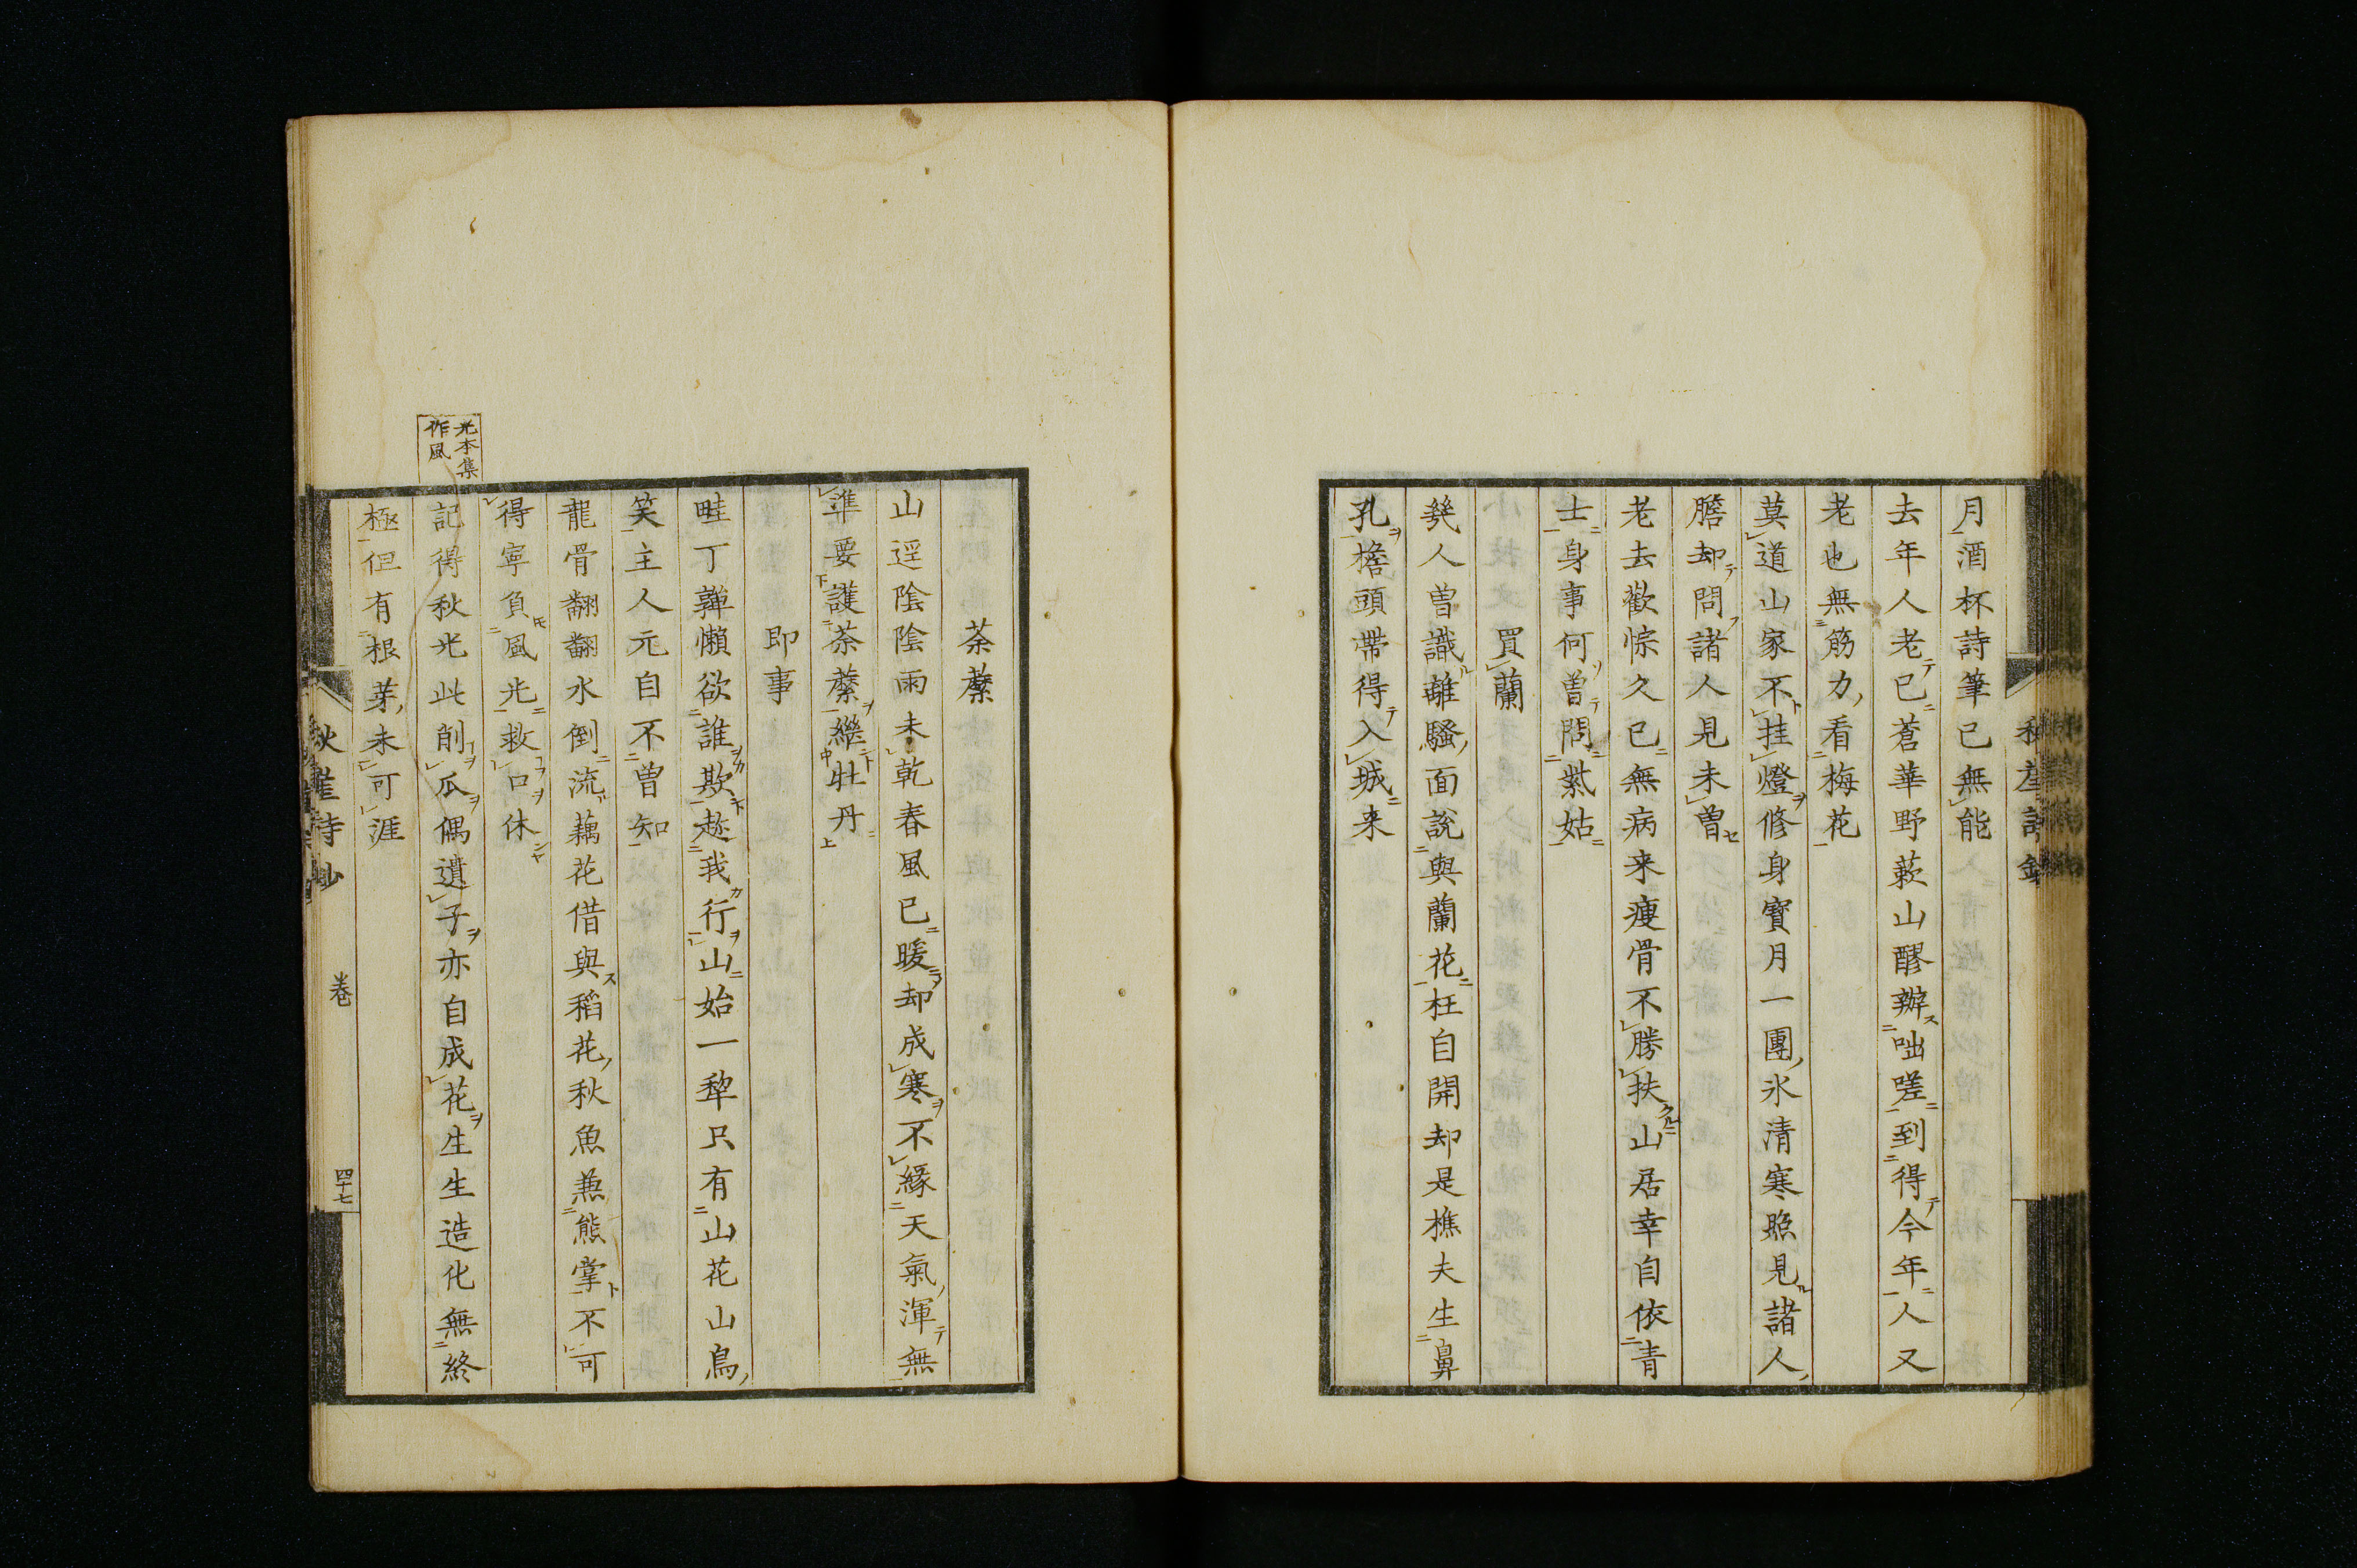 月酒杯詩筆已無能
去年人老已蒼華野蔌山醪辦咄嗟到得今年人又
老也無筋力看梅花
莫道山家不挂燈修身寳月一團氷清寒照見諸人
膽却問諸人見未曽
老去歡悰久已無病来瘦骨不勝扶山居幸自依青
士身事何曽問紫姑
買蘭
幾人曽識離騷面說與蘭花枉自開却是樵夫生鼻
孔檐頭帶得入城来
荼蘼
山逕陰陰雨未乾春風已暖却成寒不緣天氣渾無
準要護荼蘼繼牡丹
即事
畦丁鞾懶欲誰欺趁我行山始一犂只有山花山鳥
笑主人元自不曽知
龍骨翻翻水倒流藕花借與稻花秋魚兼熊掌不可
得寧負風光救口休
光本集
作風
記得秋光此削瓜偶遺子亦自成花生生造化無終
極但有根芽未可涯
秋崖詩鈔 卷 四十七